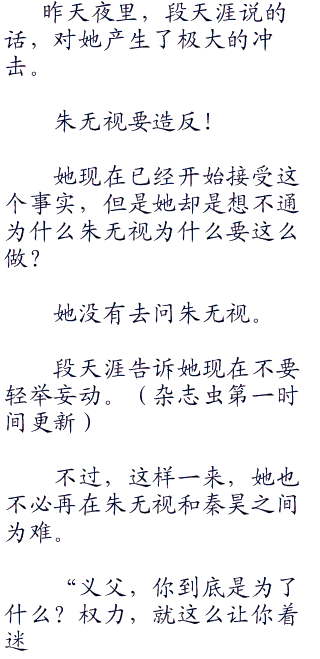 昨天夜里，段天涯说的
话，对她产生了极大的冲
击。
朱无视要造反！
她现在已经开始接受这
个事实，但是她却是想不通
为什么朱无视为什么要这么
做？
她没有去问朱无视。
段天涯告诉她现在不要
轻举妄动。（杂志虫第一时
间更新）
不过，这样一来，她也
不必再在朱无视和秦昊之间
为难。
“义父，你到底是为了
什么？权力，就这么让你着
迷